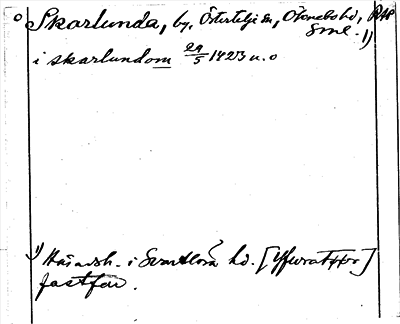 Skarlunda, by, Östertelje sn, Öknebo hd, RAP
Sml. 1)
i skarlundom 29/5 1423 u. o
1) Häradsh. i Svartlösa hd. [Yfwrattor]
fastfar.